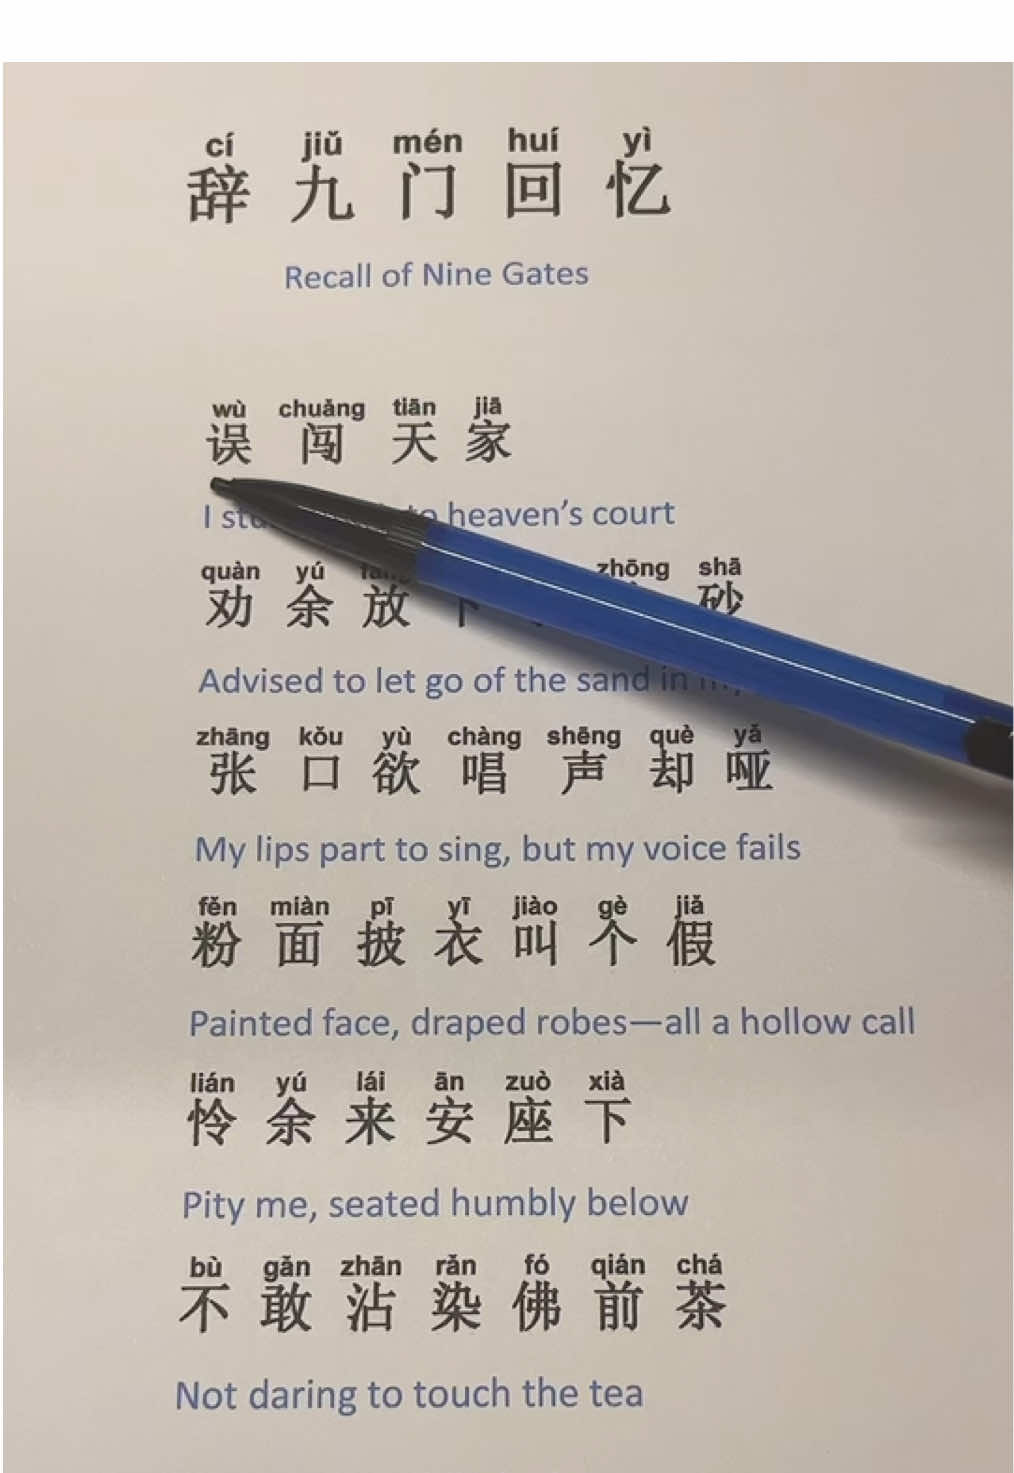 cí jiǔ mén huí yì
辞九门回忆
Recall of Nine Gates
wù chuǎng tiān jiā
误闯天家
I heaven's court
quàn yú zhōng shā
劝余放下 砂
Advised to let go of the sand in
zhāng kǒu yù chàng shēng què yǎ
张口欲唱声却哑
My lips part to sing, but my voice fails
fěn miàn pī yī jiào gè jiǎ
粉面披衣叫个假
Painted face, draped robes—all a hollow call
lián yú lái ān zuò xià
怜余来安座下
Pity me, seated humbly below
bù gǎn zhān rǎn fó qián chá
不敢沾染佛前茶
Not daring to touch the tea